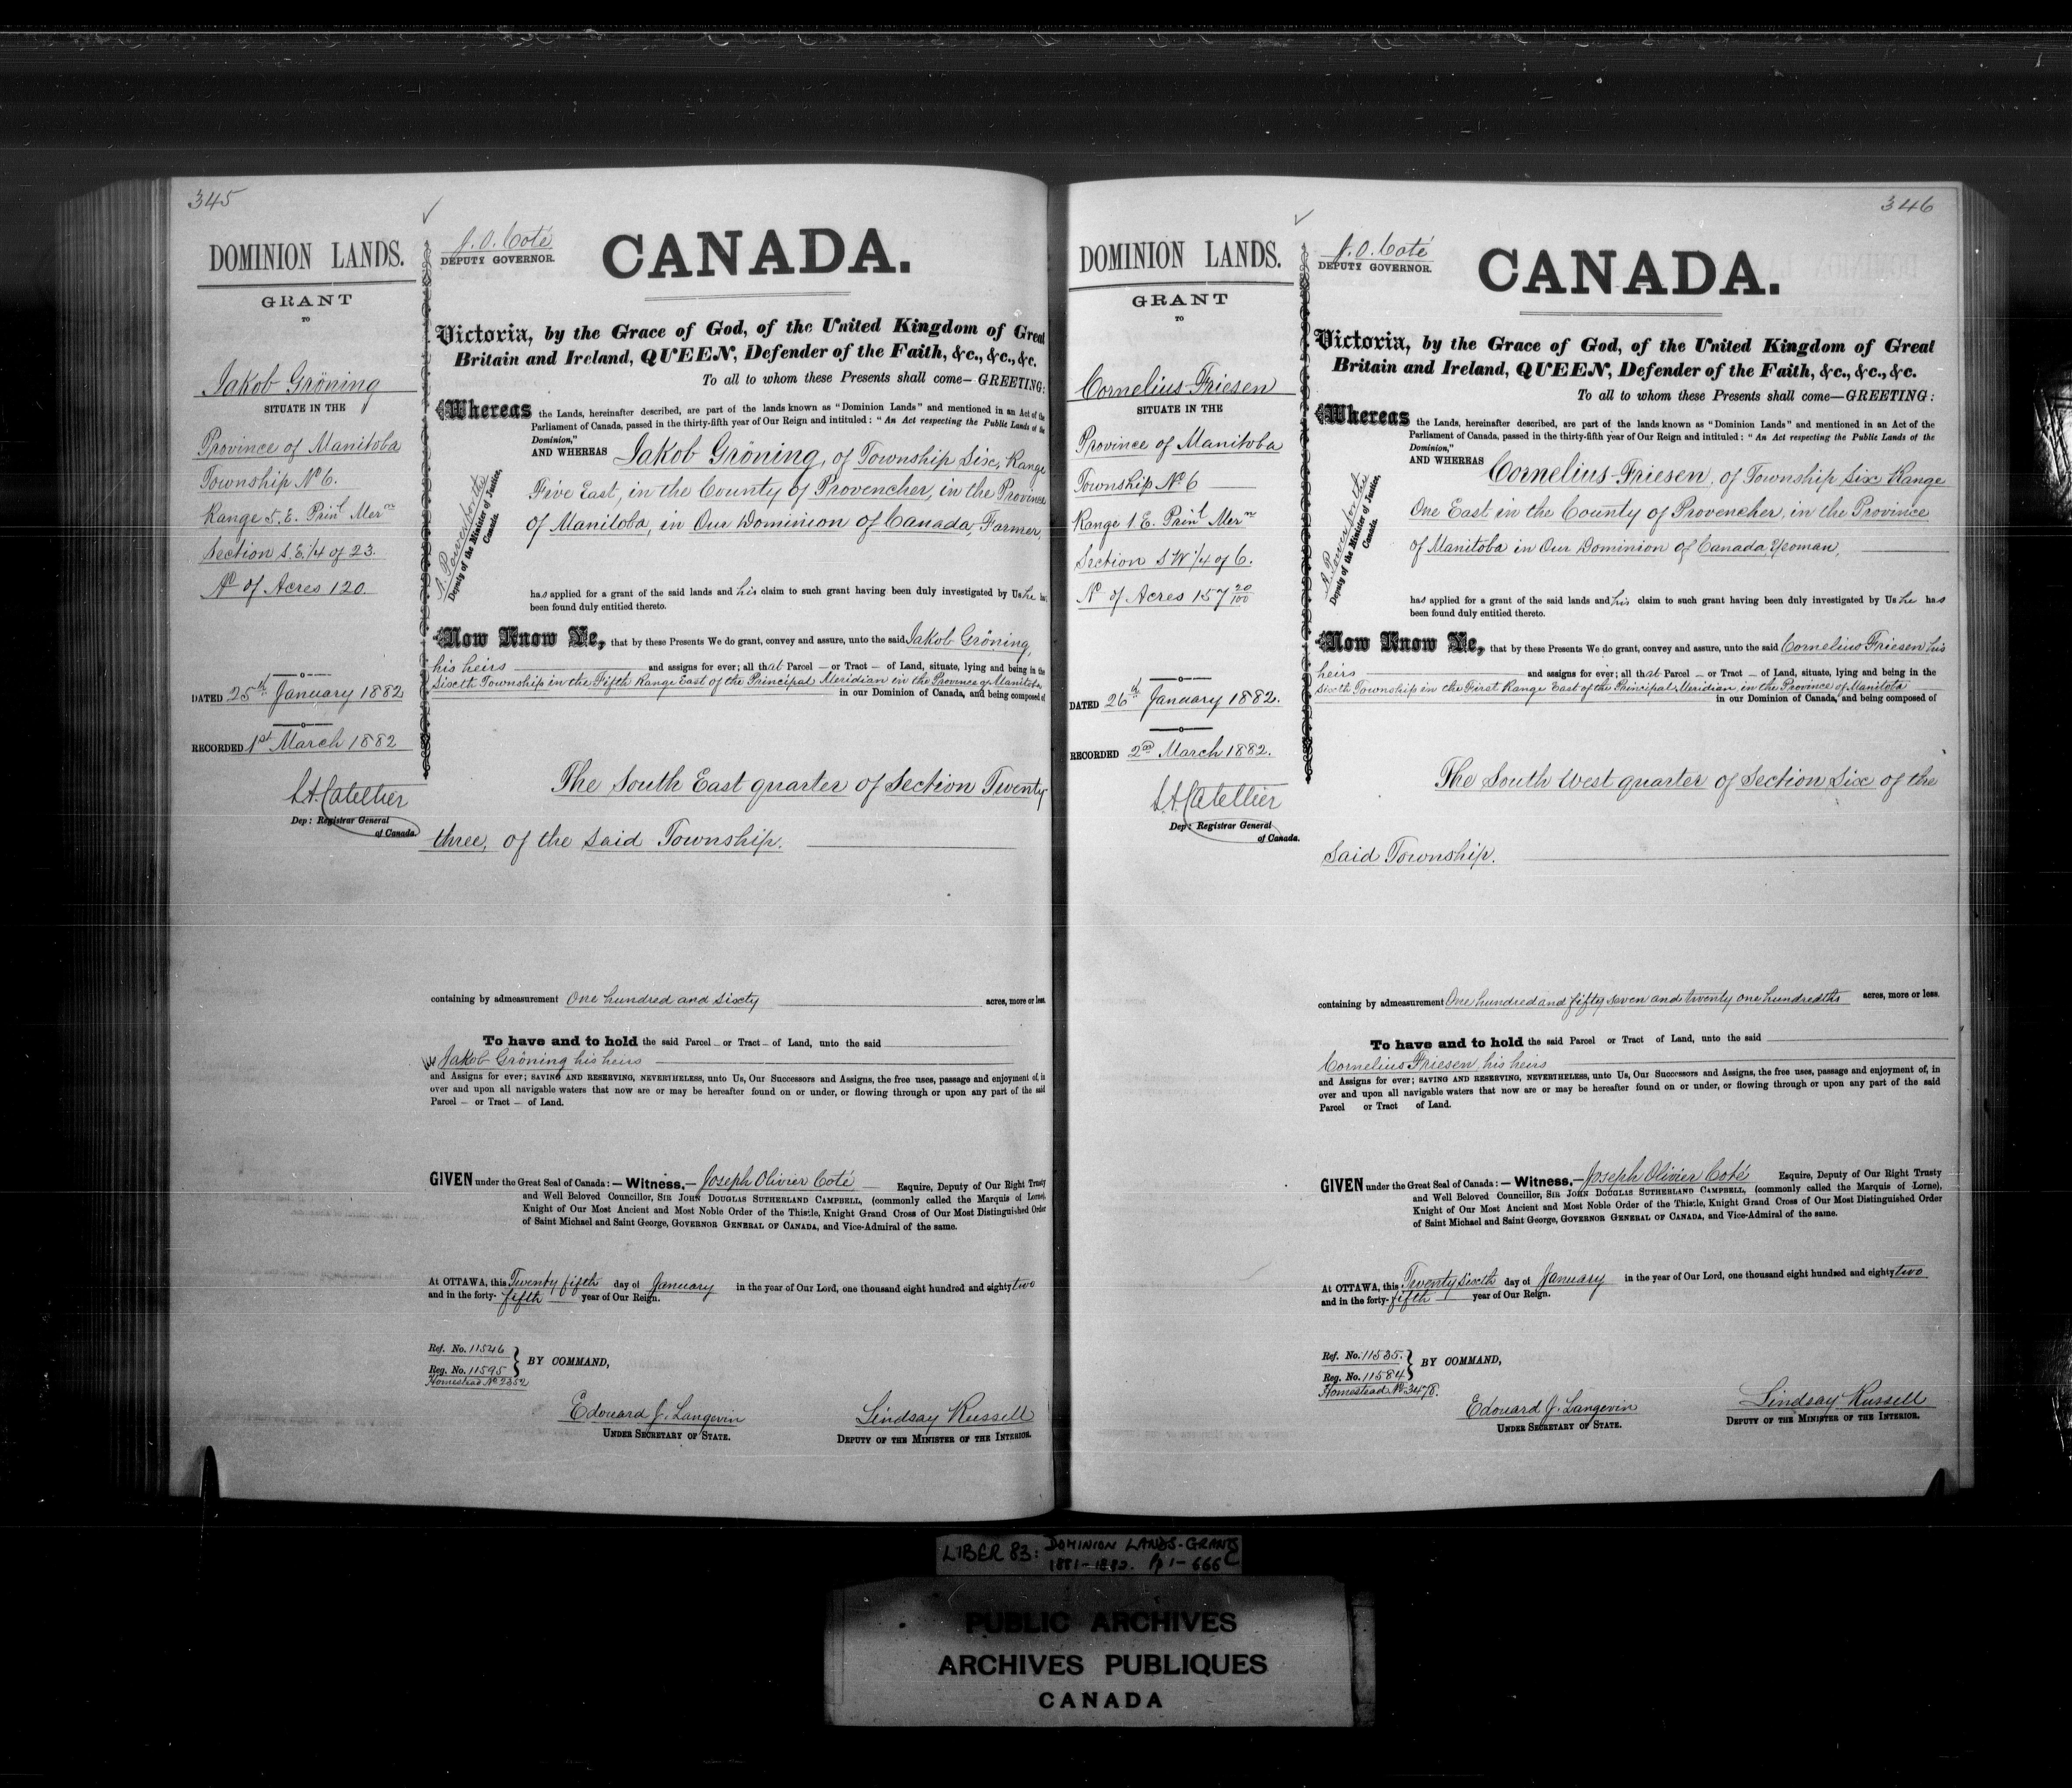 345
DOMINION LANDS.
GRANT
TO
Jakob Gröning
SITUATE IN THE
Province of Manitoba
Township No 6.
Range 5. E. Prinl. Mern
Section S. E. 1/4 of 23.
No of Acres 120.
DATED 25th January 1882
RECORDED 1st March 1882
L.A. Catellier
Dep: Registrar General
of Canada.
J. O. Coté
DEPUTY GOVERNOR.
CANADA.
Victoria, by the Grace of God, of the United Kingdom of Great
Britain and Ireland, QUEEN, Defender of the Faith, &c., &c., &c.
To all to whom these Presents shall come— GREETING:
Whereas the Lands, hereinafter described, are part of the lands known as "Dominion Lands" and mentioned in an Act of the
Parliament of Canada, passed in the thirty-fifth year of Our Reign and intituled: "An Act respecting the Public Lands of the
Dominion,"
AND WHEREAS Jakob Gröning, of Township Six, Range
Five East, in the County of Provencher, in the Province
of Manitoba, in Our Dominion of Canada, Farmer,
A. Power for the
Deputy of the Minister of Justice,
Canada.
has applied for a grant of the said lands and his claim to such grant having been duly investigated by Us he has
been found duly entitled thereto.
Now Know Ye, that by these Presents We do grant, convey and assure, unto the said Jakob Gröning,
his heirs and assigns for ever; all that Parcel — or Tract — of Land, situate, lying and being in the
Sixth Township in the Fifth Range East of the Principal Meridian in the Province of Manitoba
in our Dominion of Canada, and being composed of
The South East quarter of Section Twenty
three, of the said Township.
containing by admeasurement One hundred and sixty acres, more or less.
To have and to hold the said Parcel — or Tract — of Land, unto the said
Jakob Gröning his heirs
and Assigns for ever; SAVING AND RESERVING, NEVERTHELESS, unto Us, Our Successors and Assigns, the free uses, passage and enjoyment of, in
over and upon all navigable waters that now are or may be hereafter found on or under, or flowing through or upon any part of the said
Parcel — or Tract — of Land.
GIVEN under the Great Seal of Canada: — Witness, — Joseph Olivier Coté — Esquire, Deputy of Our Right Trusty
and Well Beloved Councillor, SIR JOHN DOUGLAS SUTHERLAND CAMPBELL, (commonly called the Marquis of Lorne),
Knight of Our Most Ancient and Most Noble Order of the Thistle, Knight Grand Cross of Our Most Distinguished Order
of Saint Michael and Saint George, GOVERNOR GENERAL OF CANADA, and Vice-Admiral of the same.
At OTTAWA, this Twenty fifth day of January in the year of Our Lord, one thousand eight hundred and eighty two
and in the forty-fifth year of Our Reign.
Ref. No. 11546
Reg. No. 11595
Homestead No 2352
BY COMMAND,
Edouard J. Langevin
UNDER SECRETARY OF STATE.
Lindsay Russell
DEPUTY OF THE MINISTER OF THE INTERIOR.
346
DOMINION LANDS.
GRANT
TO
Cornelius Friesen
SITUATE IN THE
Province of Manitoba
Township No 6
Range 1. E. Prinl. Mern
Section S W 1/4 of 6.
No of Acres 157 20/100
DATED 26th January 1882.
RECORDED 2nd March 1882.
L.A. Catellier
Dep: Registrar General
of Canada.
J. O. Coté
DEPUTY GOVERNOR.
CANADA.
Victoria, by the Grace of God, of the United Kingdom of Great
Britain and Ireland, QUEEN, Defender of the Faith, &c., &c., &c.
To all to whom these Presents shall come—GREETING:
Whereas the Lands, hereinafter described, are part of the lands known as "Dominion Lands" and mentioned in an Act of the
Parliament of Canada, passed in the thirty-fifth year of Our Reign and intituled: "An Act respecting the Public Lands of the
Dominion,"
AND WHEREAS Cornelius Friesen, of Township Six Range
One East in the County of Provencher, in the Province
of Manitoba in Our Dominion of Canada Yeoman,
A. Power for the
Deputy of the Minister of Justice,
Canada.
has applied for a grant of the said lands and his claim to such grant having been duly investigated by Us he has
been found duly entitled thereto.
Now Know Ye, that by these Presents We do grant, convey and assure, unto the said Cornelius Friesen his
heirs and assigns for ever; all that Parcel — or Tract — of Land, situate, lying and being in the
Sixth Township in the First Range East of the Principal Meridian, in the Province of Manitoba
in our Dominion of Canada, and being composed of
The South West quarter of Section Six of the
said Township.
containing by admeasurement One hundred and fifty seven and twenty one hundredths acres, more or less.
To have and to hold the said Parcel or Tract of Land, unto the said
Cornelius Friesen, his heirs
and Assigns for ever; SAVING AND RESERVING, NEVERTHELESS, unto Us, Our Successors and Assigns, the free uses, passage and enjoyment of, in
over and upon all navigable waters that now are or may be hereafter found on or under, or flowing through or upon any part of the said
Parcel or Tract of Land.
GIVEN under the Great Seal of Canada: — Witness, — Joseph Olivier Coté Esquire, Deputy of Our Right Trusty
and Well Beloved Councillor, SIR JOHN DOUGLAS SUTHERLAND CAMPBELL, (commonly called the Marquis of Lorne),
Knight of Our Most Ancient and Most Noble Order of the Thistle, Knight Grand Cross of Our Most Distinguished Order
of Saint Michael and Saint George, GOVERNOR GENERAL OF CANADA, and Vice-Admiral of the same.
At OTTAWA, this Twenty Sixth day of January in the year of Our Lord, one thousand eight hundred and eighty two
and in the forty-fifth year of Our Reign.
Ref. No. 11535.
Reg. No. 11584
Homestead No 3478.
BY COMMAND,
Edouard J. Langevin
UNDER SECRETARY OF STATE.
Lindsay Russell
DEPUTY OF THE MINISTER OF THE INTERIOR.
LIBER 83: DOMINION LANDS-GRANTS
1881-1882. Pp 1-666C
PUBLIC ARCHIVES
ARCHIVES PUBLIQUES
CANADA